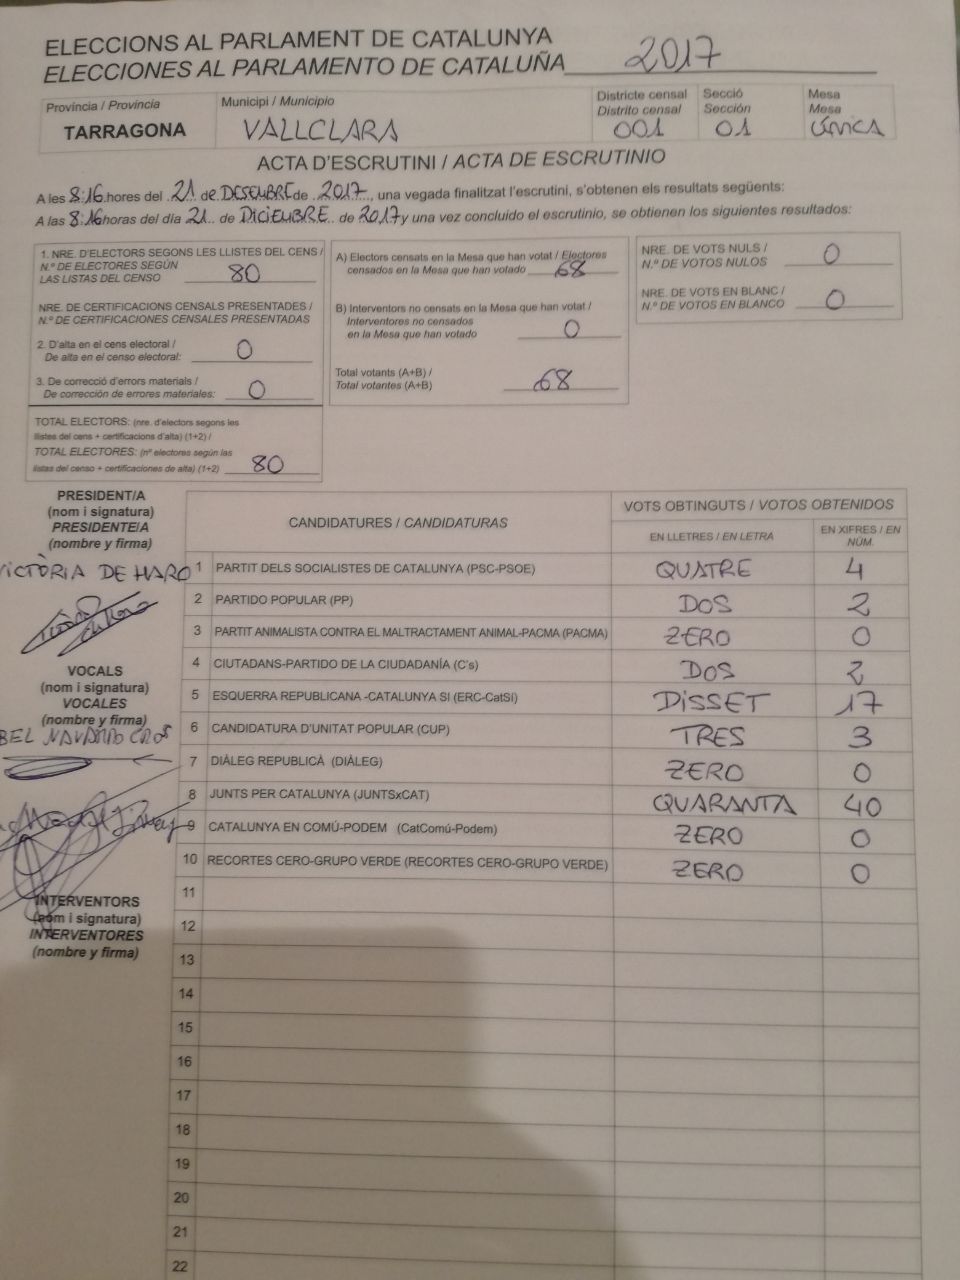 ELECCIONS AL PARLAMENT DE CATALUNYA
ELECCIONES AL PARLAMENTO DE CATALUÑA 2017
Província / Provincia
TARRAGONA
Municipi / Municipio
VALLCLARA
Districte censal
Distrito censal
001
Secció
Sección
01
Mesa
Mesa
única
ACTA D'ESCRUTINI / ACTA DE ESCRUTINIO
A les 8:16 hores del 21 de DESEMBRE de 2017, una vegada finalitzat l'escrutini, s'obtenen els resultats següents:
A las 8:16 horas del día 21 de DICIEMBRE de 2017 y una vez concluido el escrutinio, se obtienen los siguientes resultados:
1. NRE. D'ELECTORS SEGONS LES LLISTES DEL CENS /
N.º DE ELECTORES SEGÚN
LAS LISTAS DEL CENSO 80
NRE. DE CERTIFICACIONS CENSALS PRESENTADES /
N.º DE CERTIFICACIONES CENSALES PRESENTADAS
2. D'alta en el cens electoral /
De alta en el censo electoral: 0
3. De correcció d'errors materials /
De corrección de errores materiales: 0
TOTAL ELECTORS: (nre. d'electors segons les
llistes del cens + certificacions d'alta) (1+2) /
TOTAL ELECTORES: (nº electores según las
listas del censo + certificaciones de alta) (1+2) 80
A) Electors censats en la Mesa que han votat / Electores
censados en la Mesa que han votado 68
B) Interventors no censats en la Mesa que han votat /
Interventores no censados
en la Mesa que han votado 0
Total votants (A+B) /
Total votantes (A+B) 68
NRE. DE VOTS NULS /
N.º DE VOTOS NULOS 0
NRE. DE VOTS EN BLANC /
N.º DE VOTOS EN BLANCO 0
PRESIDENT/A
(nom i signatura)
PRESIDENTE/A
(nombre y firma)
VICTÒRIA DE HARO
VOCALS
(nom i signatura)
VOCALES
(nombre y firma)
BEL NAVARRO CROS
INTERVENTORS
(nom i signatura)
INTERVENTORES
(nombre y firma)
CANDIDATURES / CANDIDATURAS
VOTS OBTINGUTS / VOTOS OBTENIDOS
EN LLETRES / EN LETRA
EN XIFRES / EN
NÚM.
1 PARTIT DELS SOCIALISTES DE CATALUNYA (PSC-PSOE) QUATRE 4
2 PARTIDO POPULAR (PP) DOS 2
3 PARTIT ANIMALISTA CONTRA EL MALTRACTAMENT ANIMAL-PACMA (PACMA) ZERO 0
4 CIUTADANS-PARTIDO DE LA CIUDADANÍA (C's) DOS 2
5 ESQUERRA REPUBLICANA -CATALUNYA SI (ERC-CatSí) DISSET 17
6 CANDIDATURA D'UNITAT POPULAR (CUP) TRES 3
7 DIÀLEG REPUBLICÀ (DIÀLEG) ZERO 0
8 JUNTS PER CATALUNYA (JUNTSxCAT) QUARANTA 40
9 CATALUNYA EN COMÚ-PODEM (CatComú-Podem) ZERO 0
10 RECORTES CERO-GRUPO VERDE (RECORTES CERO-GRUPO VERDE) ZERO 0
11
12
13
14
15
16
17
18
19
20
21
22